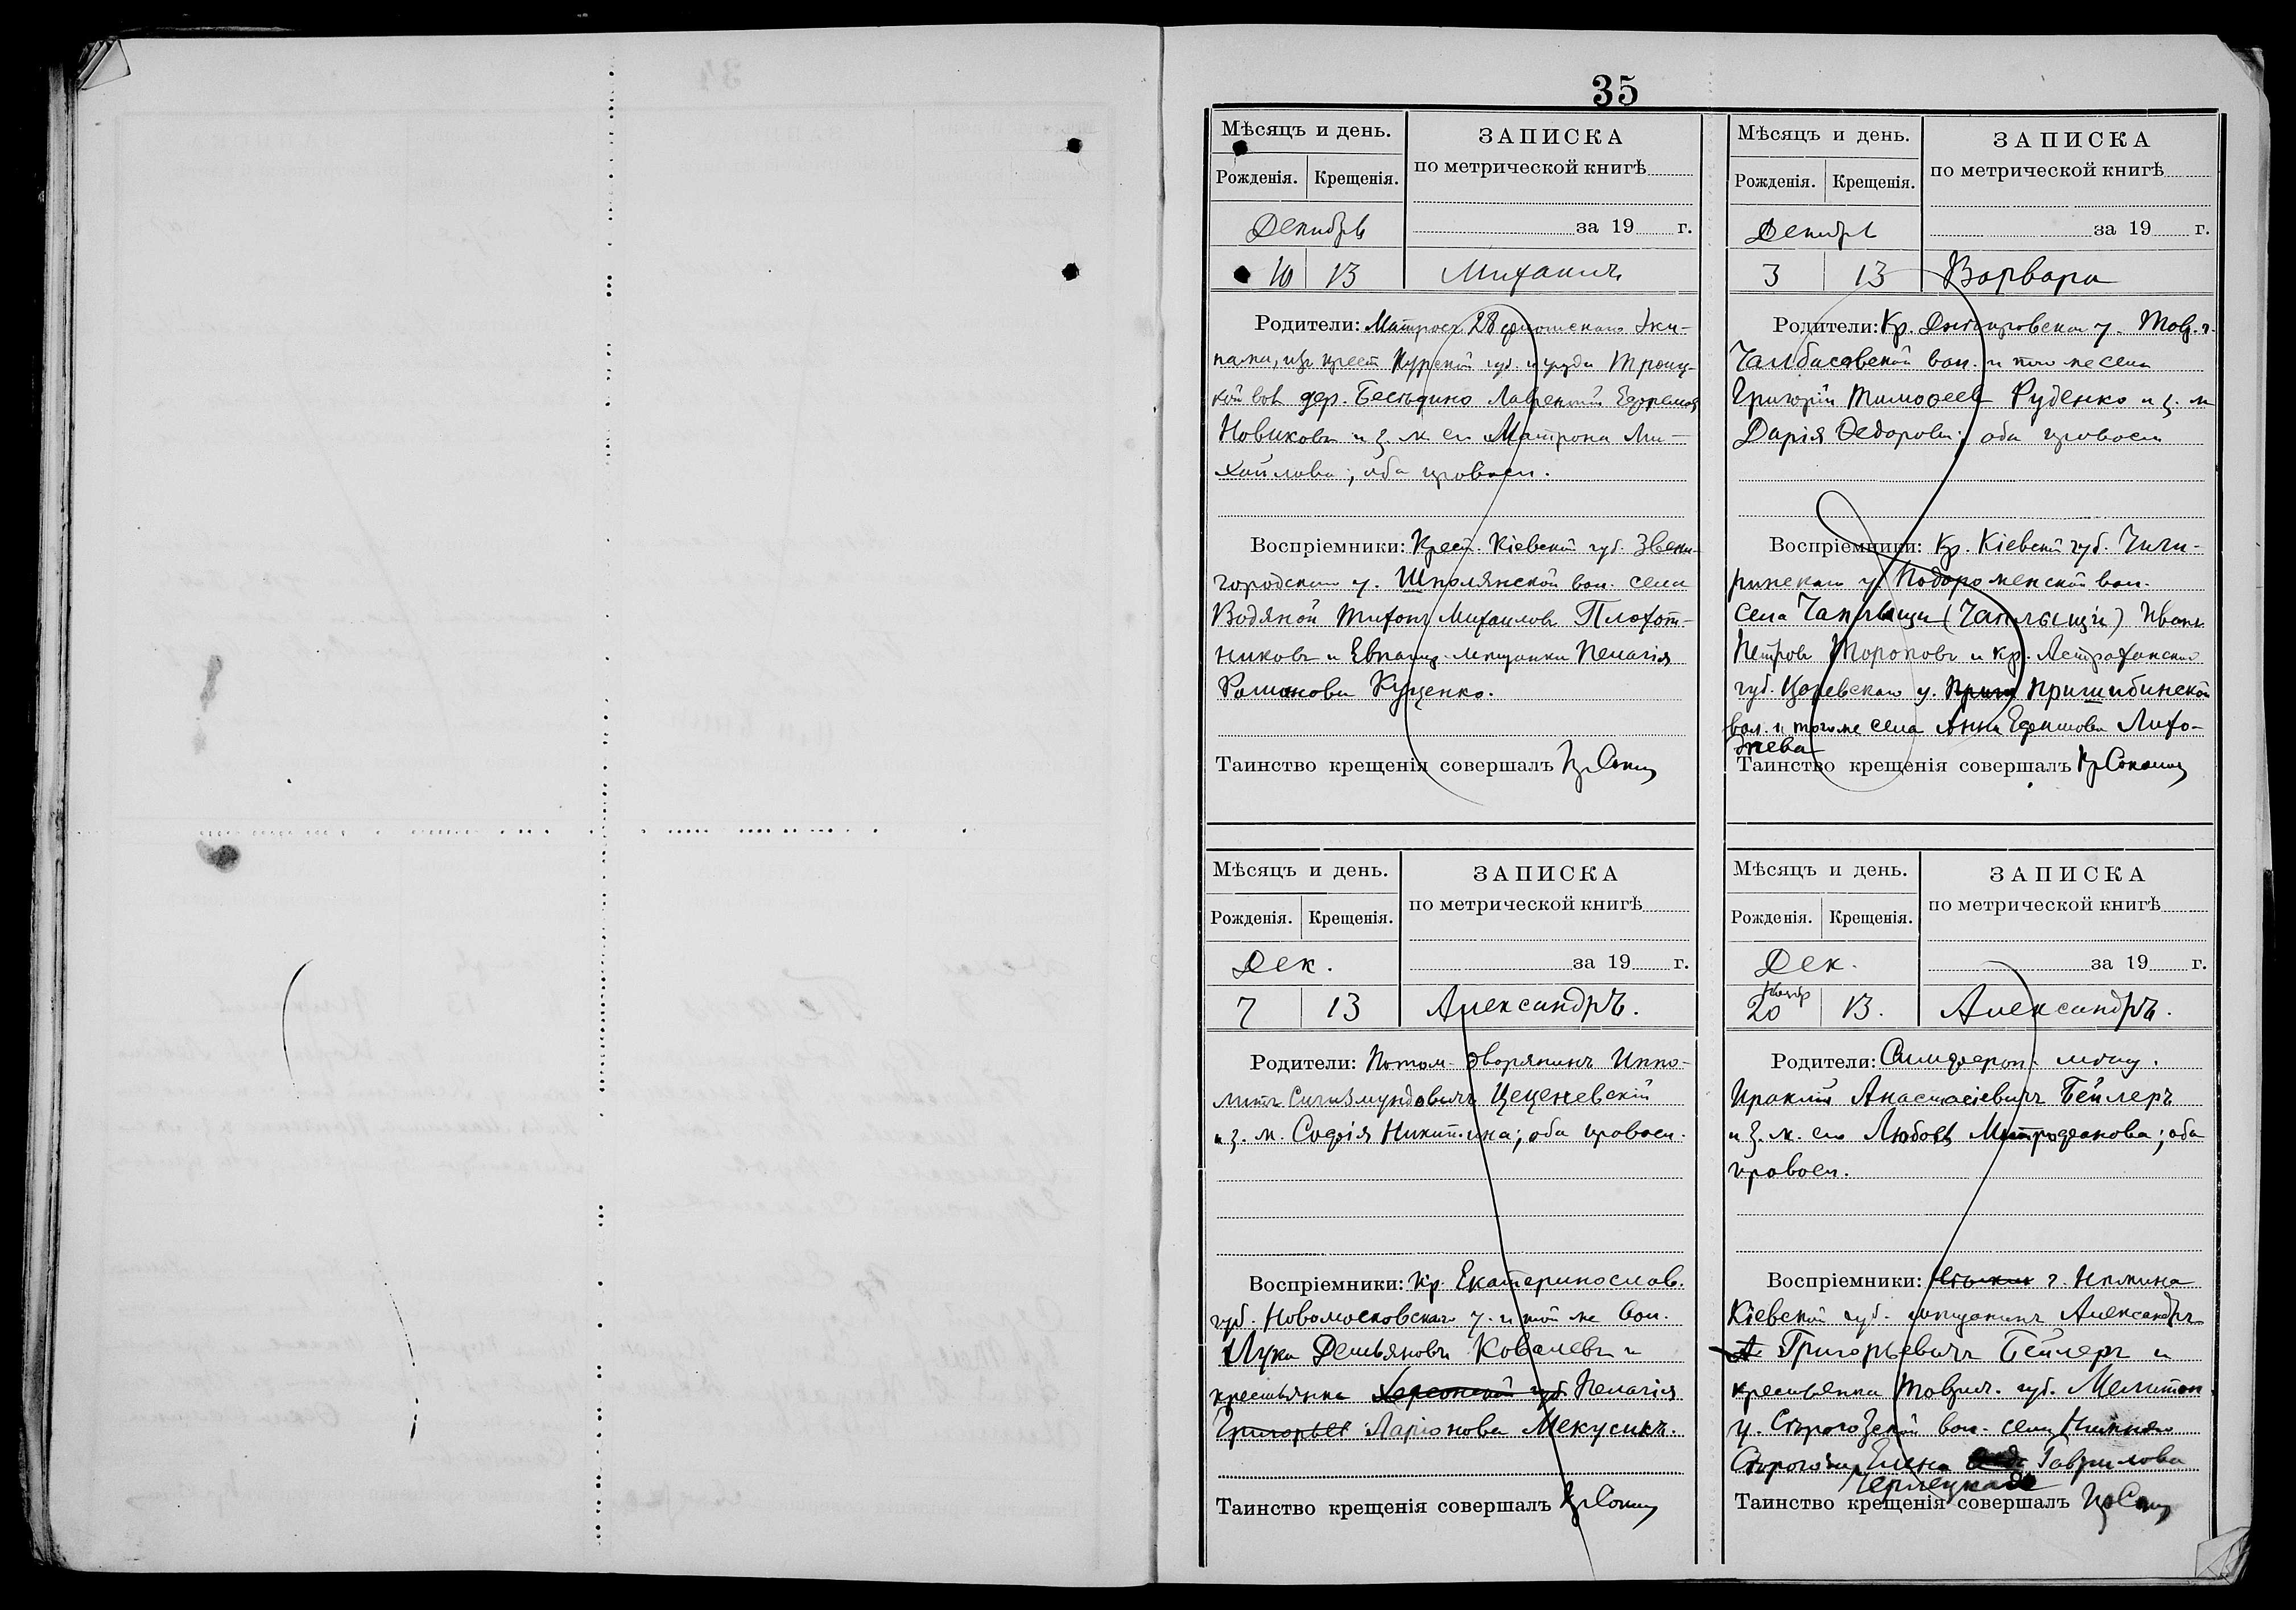 35
Мѣсяцъ и день.
Рожденія. Крещенія.
ЗАПИСКА
по метрической книгѣ
за 19 г.
Декабрь
10 13 Михаилъ
Родители: Матросъ 28 флотскаго Эки-
пажа, изъ крест Курской губ. и уѣзда Троиц-
кой вол дер. Бесѣдино Лаврентій Ефремовъ
Новиковъ и з. ж. его Матрона Ми-
хайлова; оба правосл.
Воспріемники: Крест. Кіевской губ. Звени-
городскаго у. Шполянской вол. села
Водяной Тихонъ Михаиловъ Плохот-
никовъ и Евпатор. мѣщанка Пелагія
Романова Куценко.
Таинство крещенія совершалъ
Мѣсяцъ и день.
Рожденія. Крещенія.
ЗАПИСКА
по метрической книгѣ
за 19 г.
Декабрь
3 13 Варвара
Родители: Кр. Днѣпровскаго у. Тавр. г.
Чалбасовской вол. и того же села
Григорій Тимоѳеевъ Руденко и з. ж
Дарія Ѳедорова; оба правосл
Воспріемники: Кр. Кіевской губ. Чиги-
ринскаго у. Подороженской вол.
села Чаплищи (Чаплыщи) Иванъ
Петровъ Тороповъ и кр. Астраханской
губ. Царевскаго у. Пришибинской
вол. и того же села Анна Ефимова Лихо-
днева
Таинство крещенія совершалъ
Мѣсяцъ и день.
Рожденія. Крещенія.
ЗАПИСКА
по метрической книгѣ
за 19 г.
Дек.
7 13 Александръ.
Родители: Потом. дворянинъ Иппо-
литъ Сигизмундовичъ Цеценевскій
и з. ж. Софія Никитина; оба правосл.
Воспріемники: Кр. Екатеринослав.
губ. Новомосковскаго у. и той же вол.
Лука Демьяновъ Ковалевъ и
крестьянка Херсонской губ. Пелагія
Григорьев Ларіонова Мекусикъ.
Таинство крещенія совершалъ
Мѣсяцъ и день.
Рожденія. Крещенія.
ЗАПИСКА
по метрической книгѣ
за 19 г.
Дек.
Ноябр
20 13. Александръ.
Родители: Симфероп. мѣщ.
Ираклій Анастасіевичъ Бейлеръ
и з. ж. его Любовь Митрофанова; оба
правосл.
Воспріемники: г. Нѣжина
Кіевской губ. мѣщанинъ Александръ
А Григорьевичъ Бейлеръ и
крестьянка Таврич. губ. Мелитоп
у. Сѣрогозской вол. села Нижнихъ
Сѣрогозъ Елена Гаврилова
Черлецкая
Таинство крещенія совершалъ